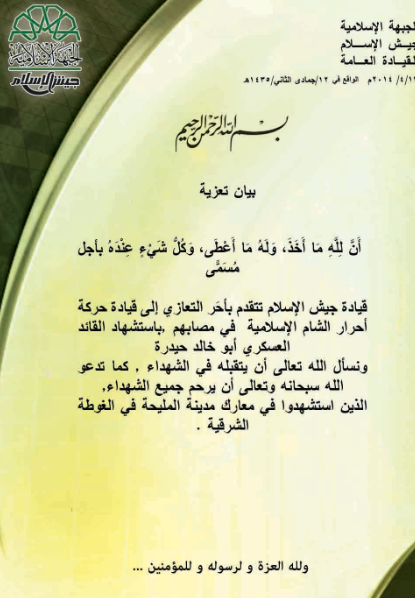 الجبهة الإسلامية
جيش الإسلام
لجبهة الإسلامية
جيش الإســلام
لقيادة العـامة
٢٠١٤/٤/١٢م الواقع في ١٢/جمادى الثاني/١٤٣٥هـ
بسم الله الرحمن الرحيم
بيان تعزية
أَنَّ لِلَّهِ مَا أَخَذَ، وَلَهُ مَا أَعْطَى، وَكُلُّ شَيْءٍ عِنْدَهُ بأجل
مُسَمًّى
قيادة جيش الإسلام تتقدم بأحَر التعازي إلى قيادة حركة
أحرار الشام الإسلامية في مصابهم ,باستشهاد القائد
العسكري أبو خالد حيدرة
ونسأل الله تعالى أن يتقبله في الشهداء , كما تدعو
الله سبحانه وتعالى أن يرحم جميع الشهداء,
الذين استشهدوا في معارك مدينة المليحة في الغوطة
الشرقية .
ولله العزة و لرسوله و للمؤمنين ...